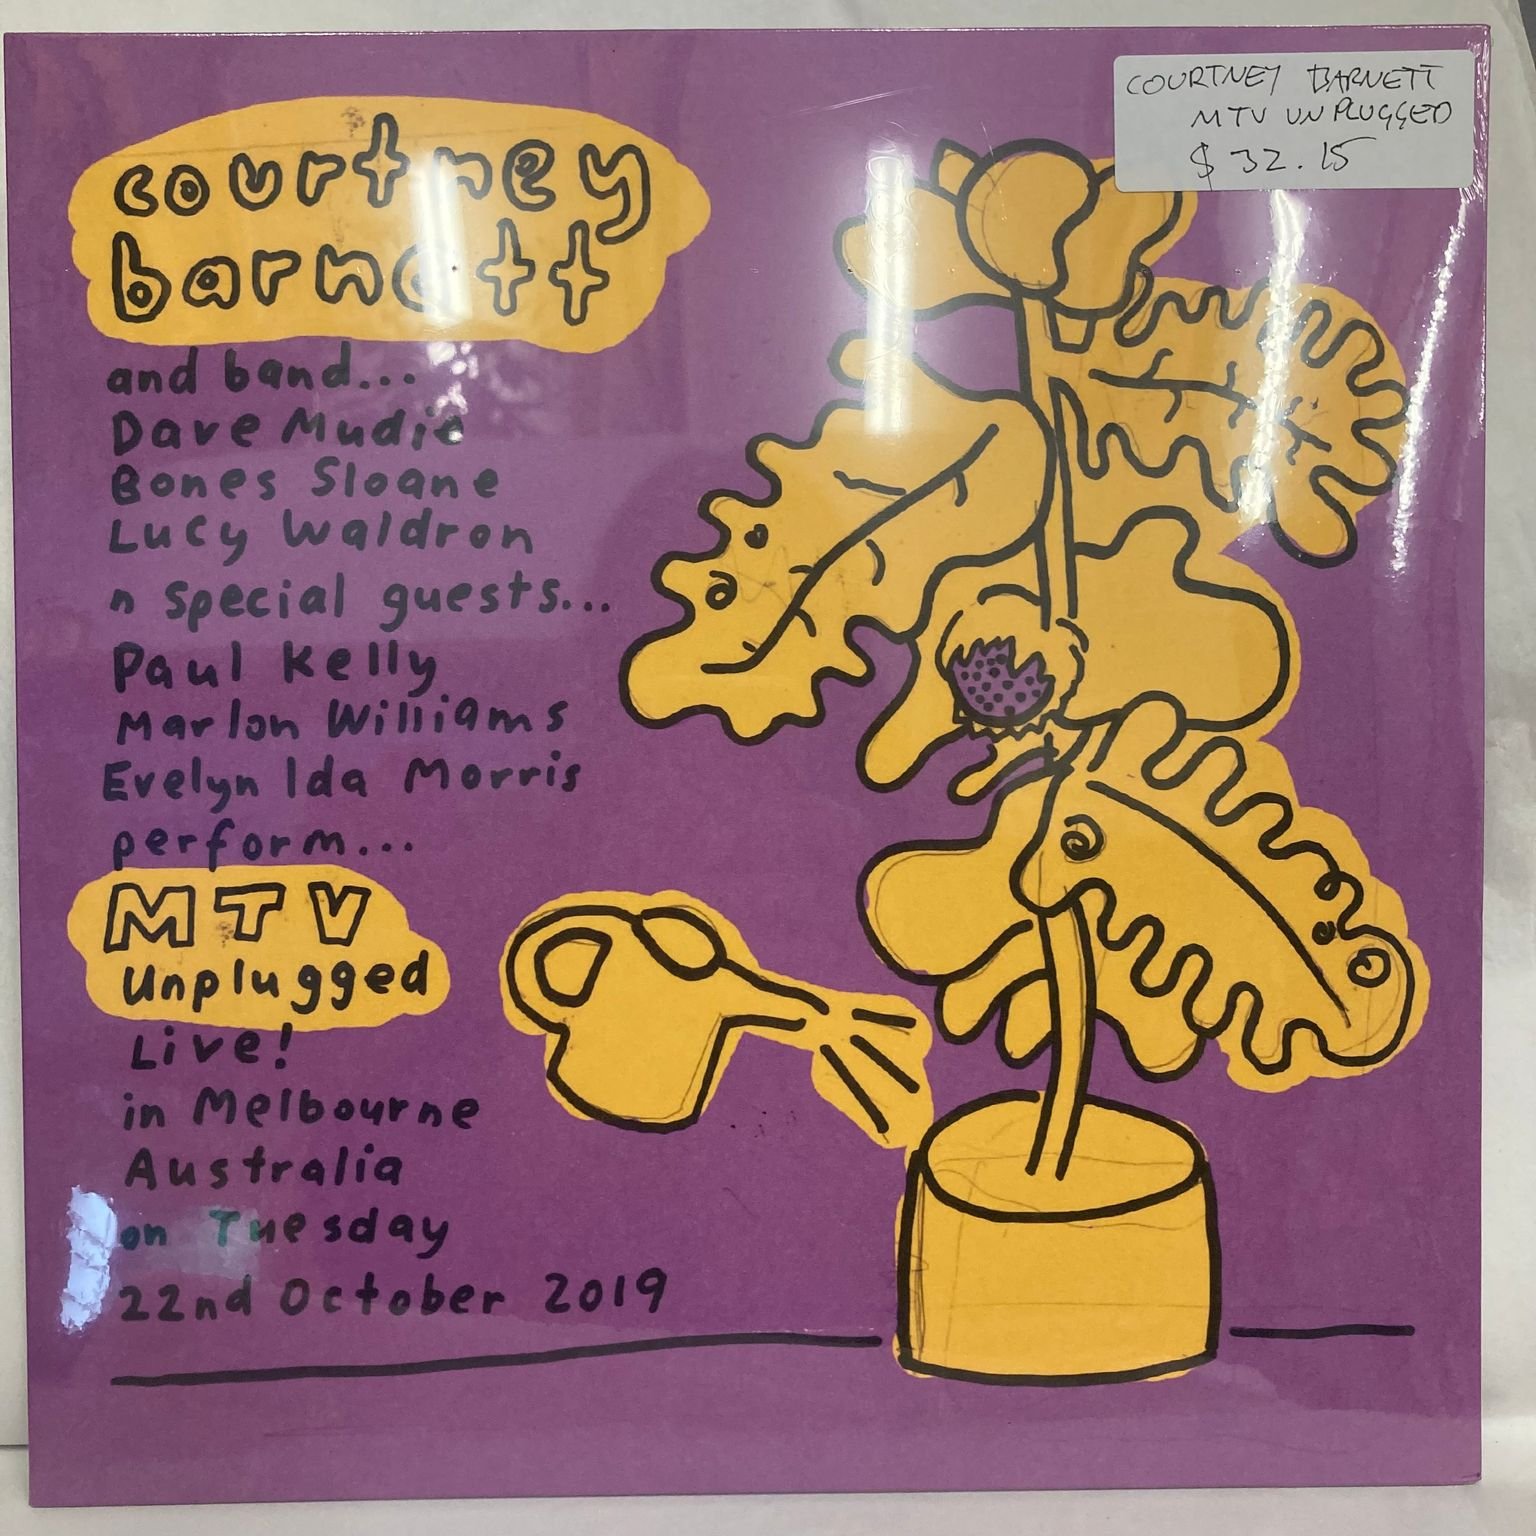 COURTNEY BARNETT
MTV UNPLUGGED
$ 32.15
courtney
barnett
and band...
Dave Mudie
Bones Sloane
Lucy Waldron
n special guests...
Paul Kelly
Marlon Williams
Evelyn Ida Morris
perform...
MTV
Unplugged
Live!
in Melbourne
Australia
on Tuesday
22nd October 2019